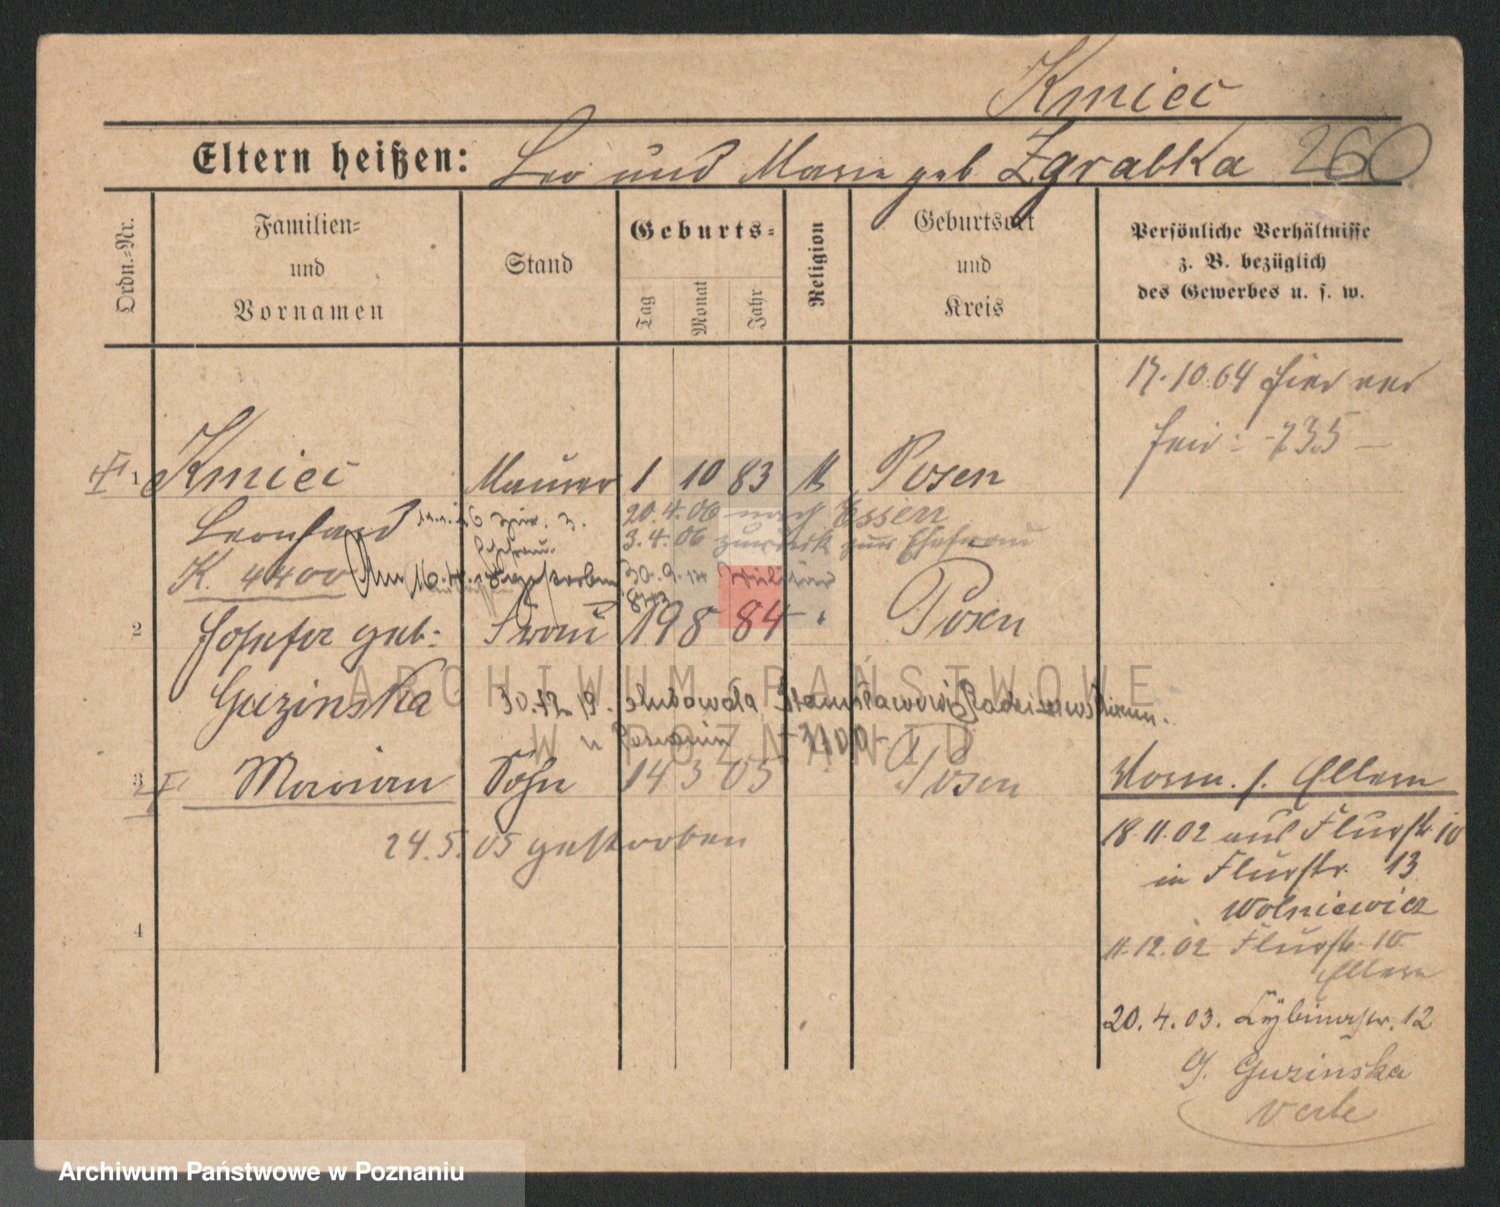 Kmieć
Eltern heißen: Leo und Marie geb Zgrabka 260
Ordn.=Nr.
Familien=
und
Vornamen
Stand
Geburts=
Tag
Monat
Jahr
Religion
Geburtsort
und
Kreis
Persönliche Verhältnisse
z. B. bezüglich
des Gewerbes u. s. w.
17.10.04
735
1 Kmieć Maurer 1 10 83 K Posen
Leonhard
20.4.06 nach Essen
3.4.06 zurück zur Ehefrau
Ehefrau
K. 4400
gestorben
30.9.14 Militär
2 Josefa geb: Frau 19 8 84 " Posen
Guzinska
30.12.19. Stanisławowi
3 Marian Sohn 14 3 05 Posen
24.5.05 gestorben
4
Vorm. s. Eltern
18 11.02 aus Flurstr 10
in Flurstr. 13
Wolniewicz
11.12.02 Flurstr. 10
Eltern
20.4.03. Cybinastr. 12
G. Guzinska
ARCHIWUM PAŃSTWOWE
W POZNANIU
Archiwum Państwowe w Poznaniu